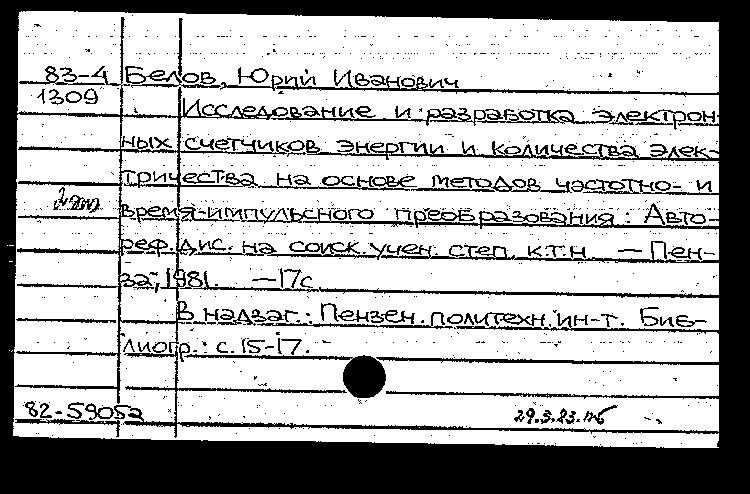 83-4 Белов, Юрий Иванович
1309 Исследование и разработка электрон-
ных счетчиков энергии и количества элек-
тричества на основе методов частотно- и
время-импульсного преобразования: Авто-
реф. дис. на соиск. учен. степ. к.т.н. — Пен-
за, 1981. — 17с.
В надзаг.: Пензен. политехн. ин-т. Биб-
лиогр.: с. 15-17.
82-59052